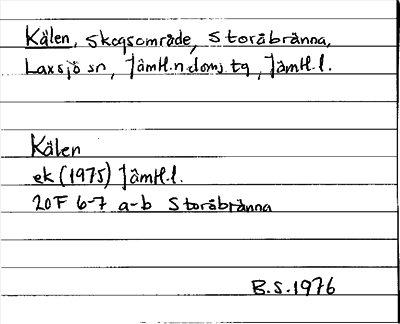 Kälen, Skogsområde, Storåbränna,
Laxsjö sn, Jämtl.n domj tg, Jämtl.l.
Kälen
ek (1975) Jämtl.l.
20F 6-7 a-b Storåbränna
B.S.1976